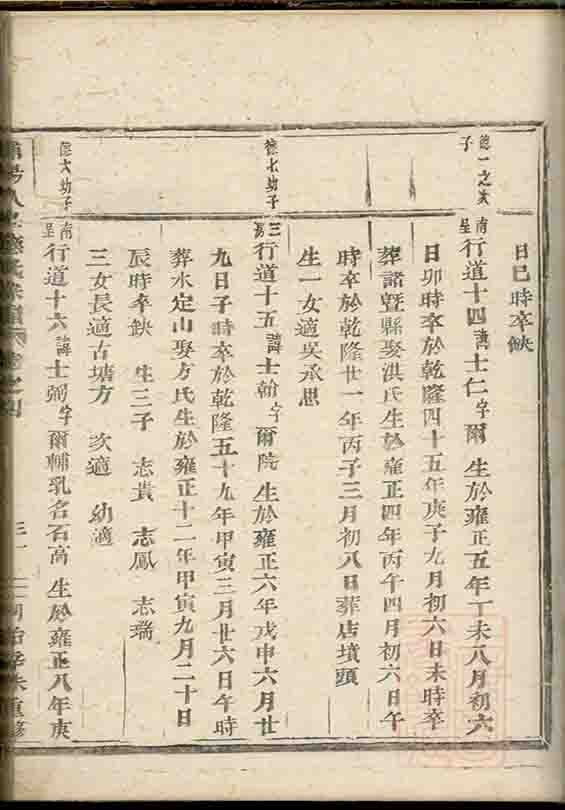 日巳時卒缺
德一之次子
南呈行道十四諱士仁字爾 生於雍正五年丁未八月初六
日卯時卒於乾隆四十五年庚子九月初六日未時卒
葬諸暨縣娶洪氏生於雍正四年丙午四月初六日午
時卒於乾隆廿一年丙子三月初八日葬店墳頭
生一女適吳承思
德七幼子
三易行道十五諱士翰字爾院 生於雍正六年戊申六月廿
九日子時卒於乾隆五十九年甲寅三月廿六日午時
葬水定山娶方氏生於雍正十二年甲寅九月二十日
辰時卒缺 生三子 志貴 志鳳 志瑞
三女長適古塘方 次適 幼適
德大幼子
南呈行道十六諱士弼字爾輔乳名石高 生於雍正八年庚